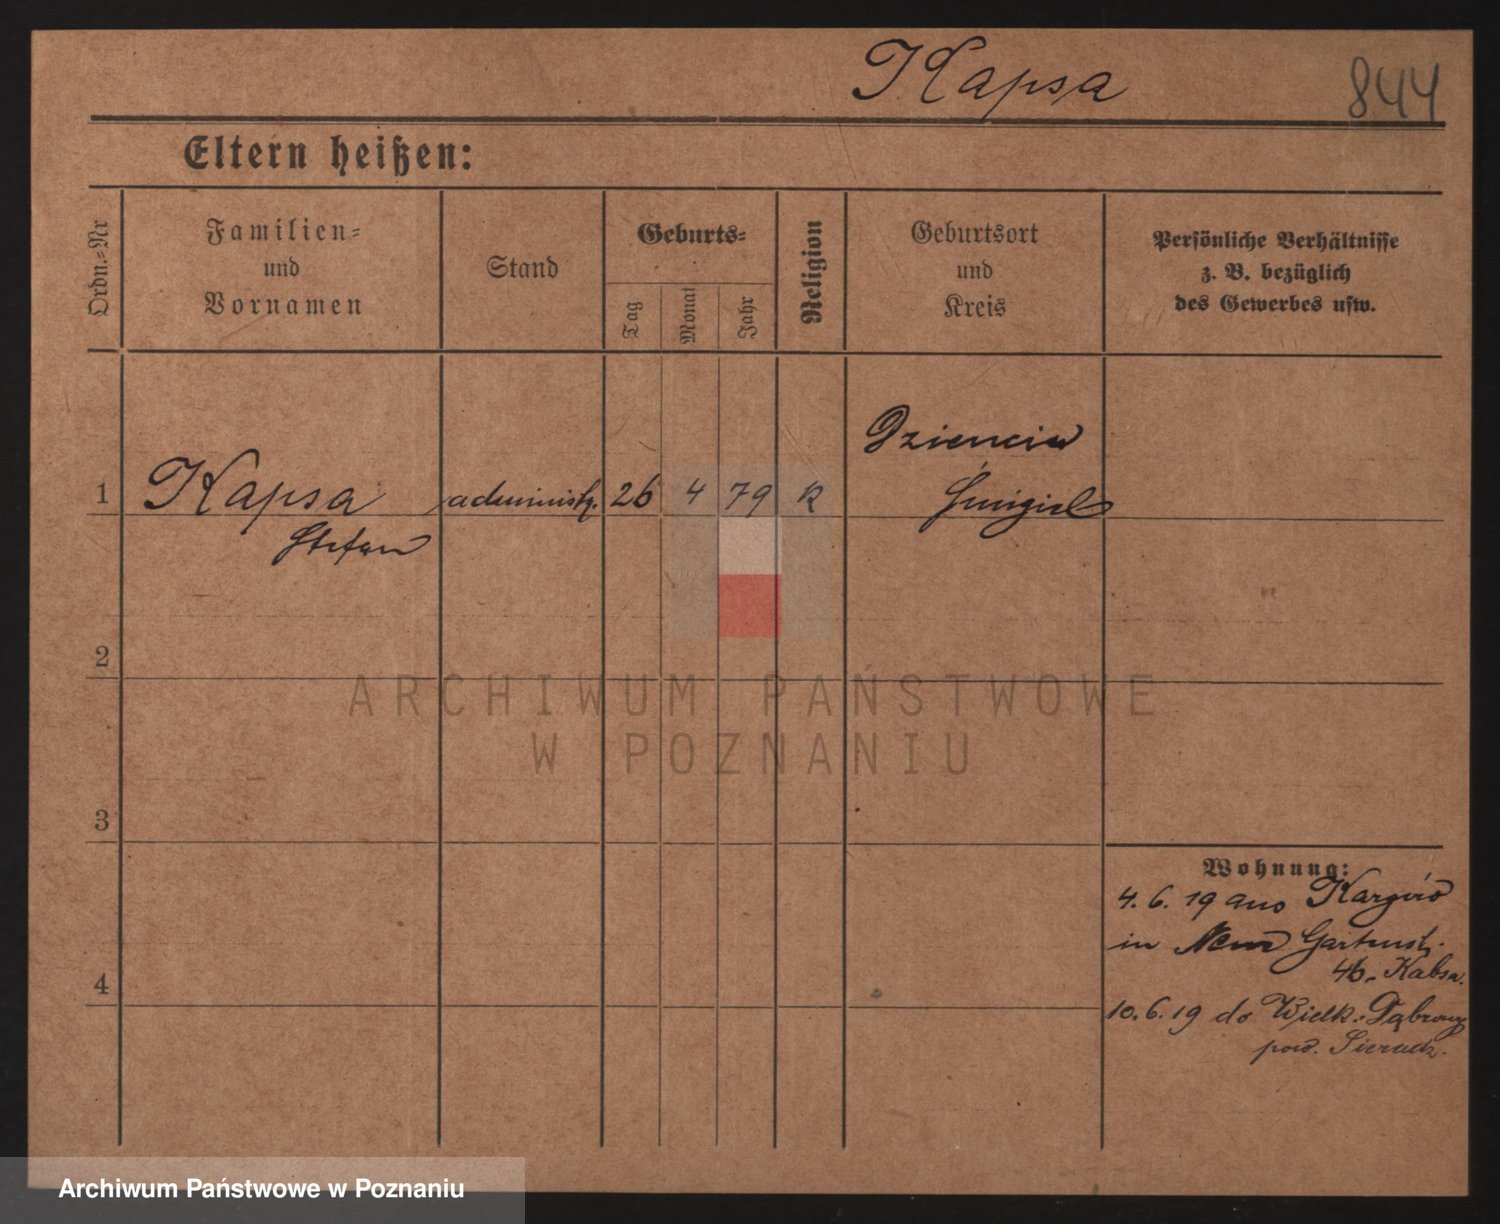 Kapsa
844
Eltern heißen:
Ordn.=Nr
Familien=
und
Vornamen
Stand
Geburts=
Tag
Monat
Jahr
Religion
Geburtsort
und
Kreis
Persönliche Verhältnisse
z. B. bezüglich
des Gewerbes usw.
1
Kapsa
Stefan
administr.
26
4
79
k
Śmigiel
2
3
4
ARCHIWUM PAŃSTWOWE
W POZNANIU
Wohnung:
4. 6. 19 aus
in Gartenstr.
4b. Kabsa.
10. 6. 19 do Wielk.
pow. Sieradz.
Archiwum Państwowe w Poznaniu